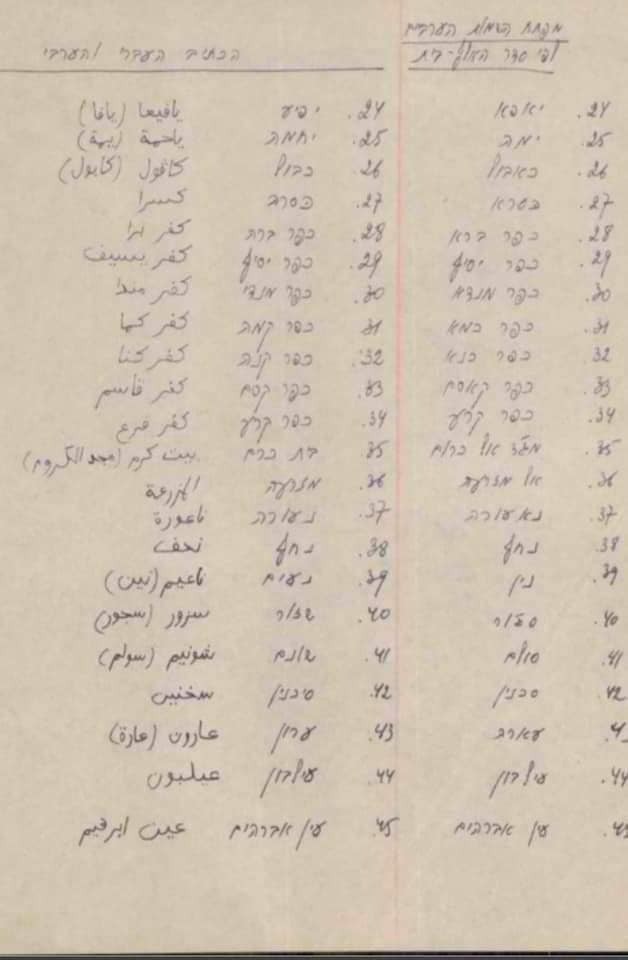 מפתח השמות הערביים
לפי סדר האלף-בית
הכתיב העברי והערבי
24. יאפא 24. יפיע يافيعا (يافا)
25. ימה 25. יחמה ياحمة (يمة)
26. כאבול 26. כבול كاڤول (كابول)
27. כסרא 27. כסרה كسرا
28. כפר ברא 28. כפר ברה كفر برا
29. כפר יסיף 29. כפר יסיף كفر يسيف
30. כפר מנדא 30. כפר מנדי كفر مندا
31. כפר כמא 31. כפר קמה كفر كما
32. כפר כנא 32. כפר קנה كفر كنا
33. כפר קאסם 33. כפר קסם كفر قاسم
34. כפר קרע 34. כפר קרע كفر قرع
35. מג'ד אל כרום 35. בית כרם بيت كرم (مجد الكروم)
36. אל מזרעה 36. מזרעה المزرعة
37. נאעורה 37. נעורה ناعورة
38. נחף 38. נחף نحف
39. נין 39. נעים ناعيم (نين)
40. סג'ור 40. שזור سزور (سجور)
41. סולם 41. שונם شونيم (سولم)
42. סכנין 42. סיכנין سخنين
43. עארה 43. ערון عارون (عارة)
44. עילבון 44. עילבון عيلبون
45. עין אברהים 45. עין אברהים عين ابرهيم